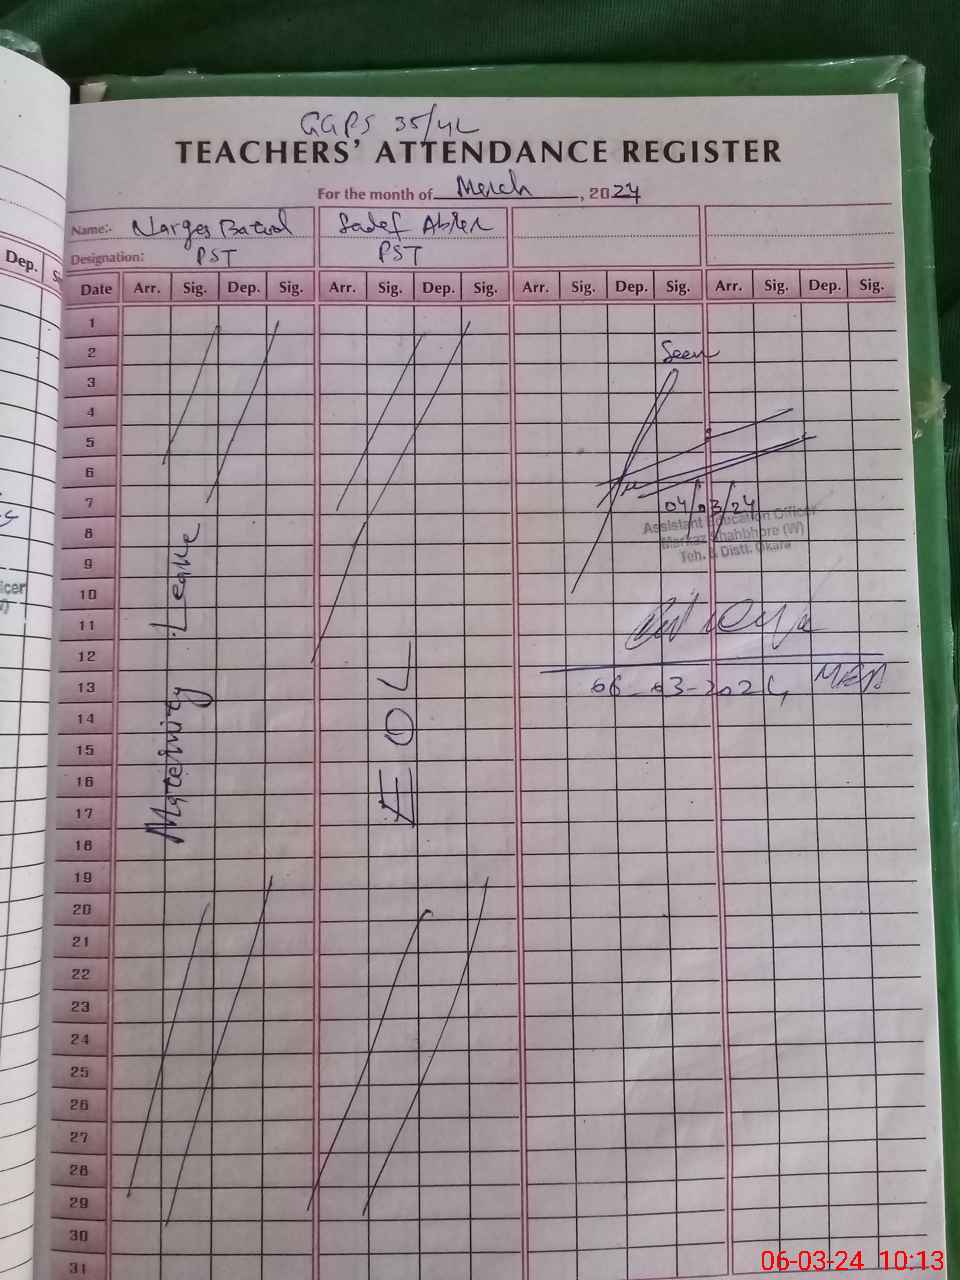 GGPS 35/4L
TEACHERS' ATTENDANCE REGISTER
For the month of March, 2024
Name:- Narges Batool Sadef
Designation: PST PST
Dep.
Date Arr. Sig. Dep. Sig. Arr. Sig. Dep. Sig. Arr. Sig. Dep. Sig. Arr. Sig. Dep. Sig.
1
2
Seen
3
4
5
6
7
04/03/24
Assistant Education Officer
Markaz Shahbhore (W)
Teh. & Distt. Okara
8
9
10
11
12
13
06-03-2024 MEA
14
15
16
17
18
19
20
21
22
23
24
25
26
27
28
29
30
31
Maternity Leave
EOL
06-03-24 10:13